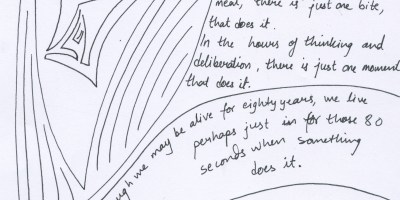 meal, there is just one bite,
that does it.
In the hours of thinking and
deliberation, there is just one moment
that does it.
we may be alive for eighty years, we live
perhaps just in for those 80
seconds when something
does it.